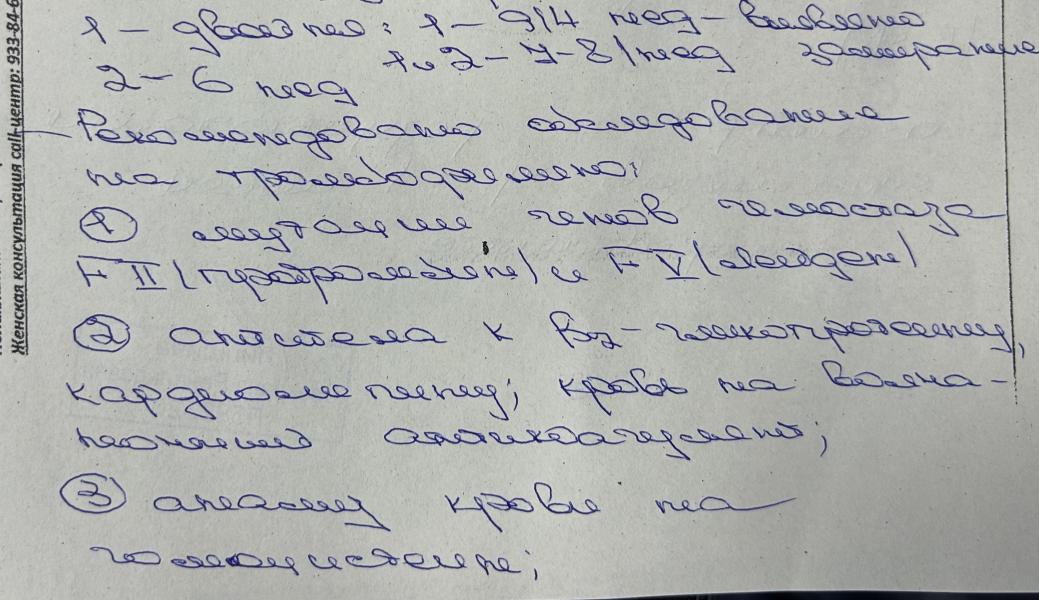 1 – двойня: 1 – 9/4 нед – выявлено
1 и 2 – 7-8/нед замирание
2 – 6 нед
Рекомендовано обследование
на тромбофилию:
① мутации генов гемостаза
F II (протромбин) и F V (лейден)
② антитела к β2-гликопротеину,
кардиолипину; кровь на волча-
ночный антикоагулянт;
③ анализ крови на
гомоцистеин;
Женская консультация call-центр: 933-84-6